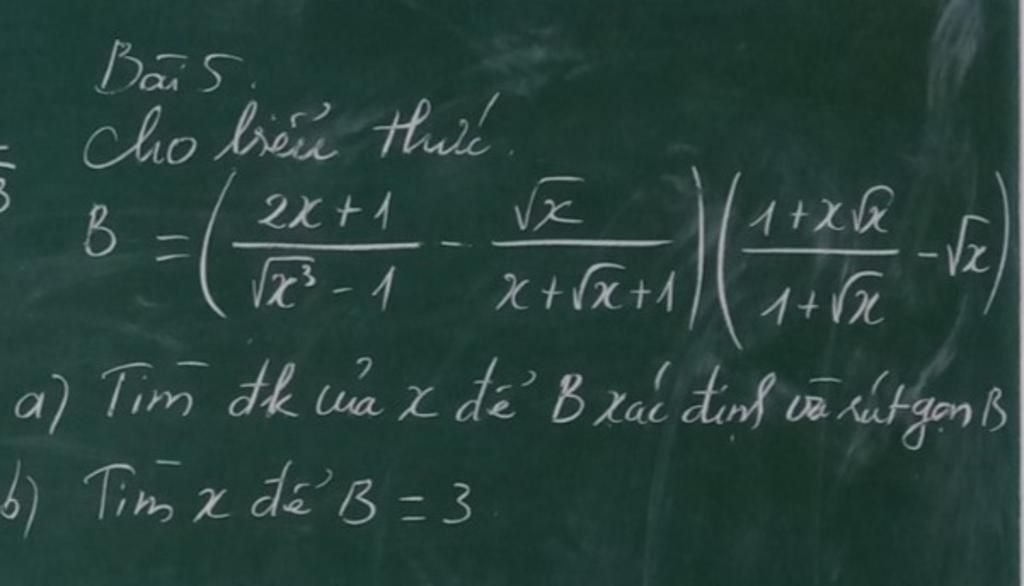 Bài 5.
Cho biểu thức.
B = ( \frac{2x+1}{\sqrt{x^3}-1} - \frac{\sqrt{x}}{x+\sqrt{x}+1} ) ( \frac{1+x\sqrt{x}}{1+\sqrt{x}} - \sqrt{x} )
a) Tìm đk của x để B xác định và rút gọn B
b) Tìm x để B = 3